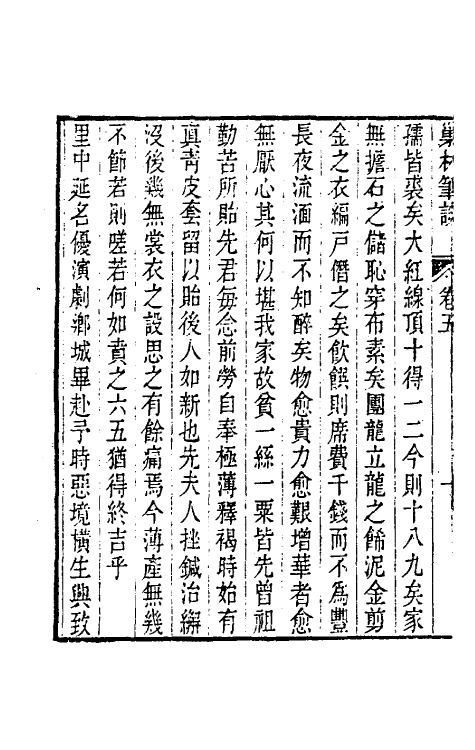 巢林筆談 卷五 十
孺皆裘矣大紅線頂十得一二今則十八九矣家
無擔石之儲恥穿布素矣團龍立龍之飾泥金剪
金之衣編戶僭之矣飲饌則席費千錢而不爲豐
長夜流湎而不知醉矣物愈貴力愈艱增華者愈
無厭心其何以堪我家故貧一絲一粟皆先曾祖
勤苦所貽先君每念前勞自奉極薄釋褐時始有
真靑皮套留以貽後人如新也先夫人挫鍼治繲
沒後幾無裳衣之設思之有餘痛焉今薄產無幾
不節若則嗟若何如賁之六五猶得終吉乎
里中延名優演劇鄉城畢赴予時惡境橫生興致